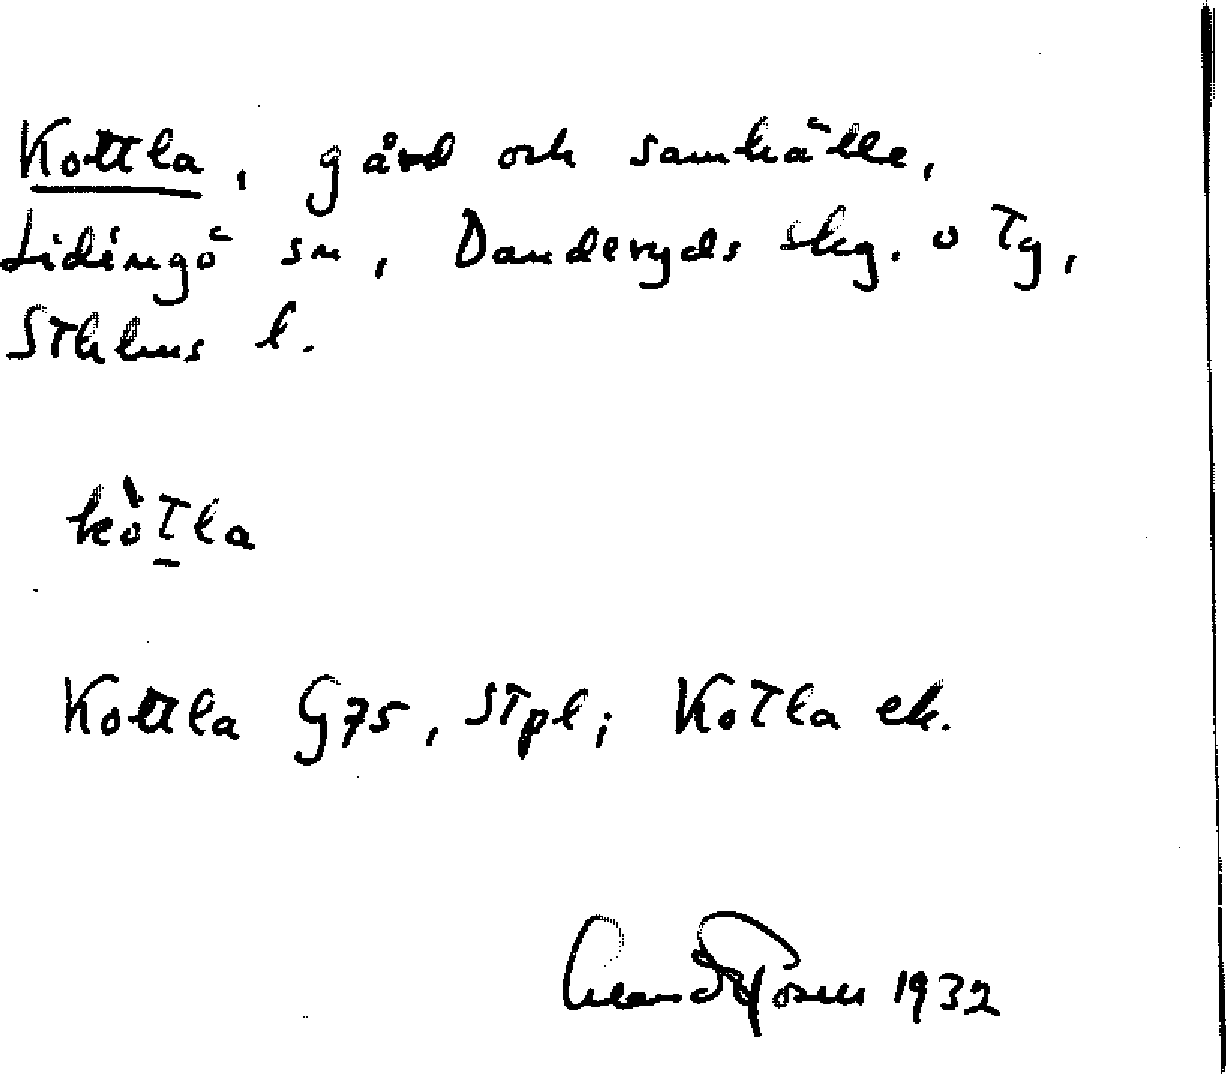 Kottla, gård och samhälle,
Lidingö sn, Danderyds skg. o Tg,
Sthlms l.
kò̀tla
Kottla G75, Stpl; Kotla ek.
1932